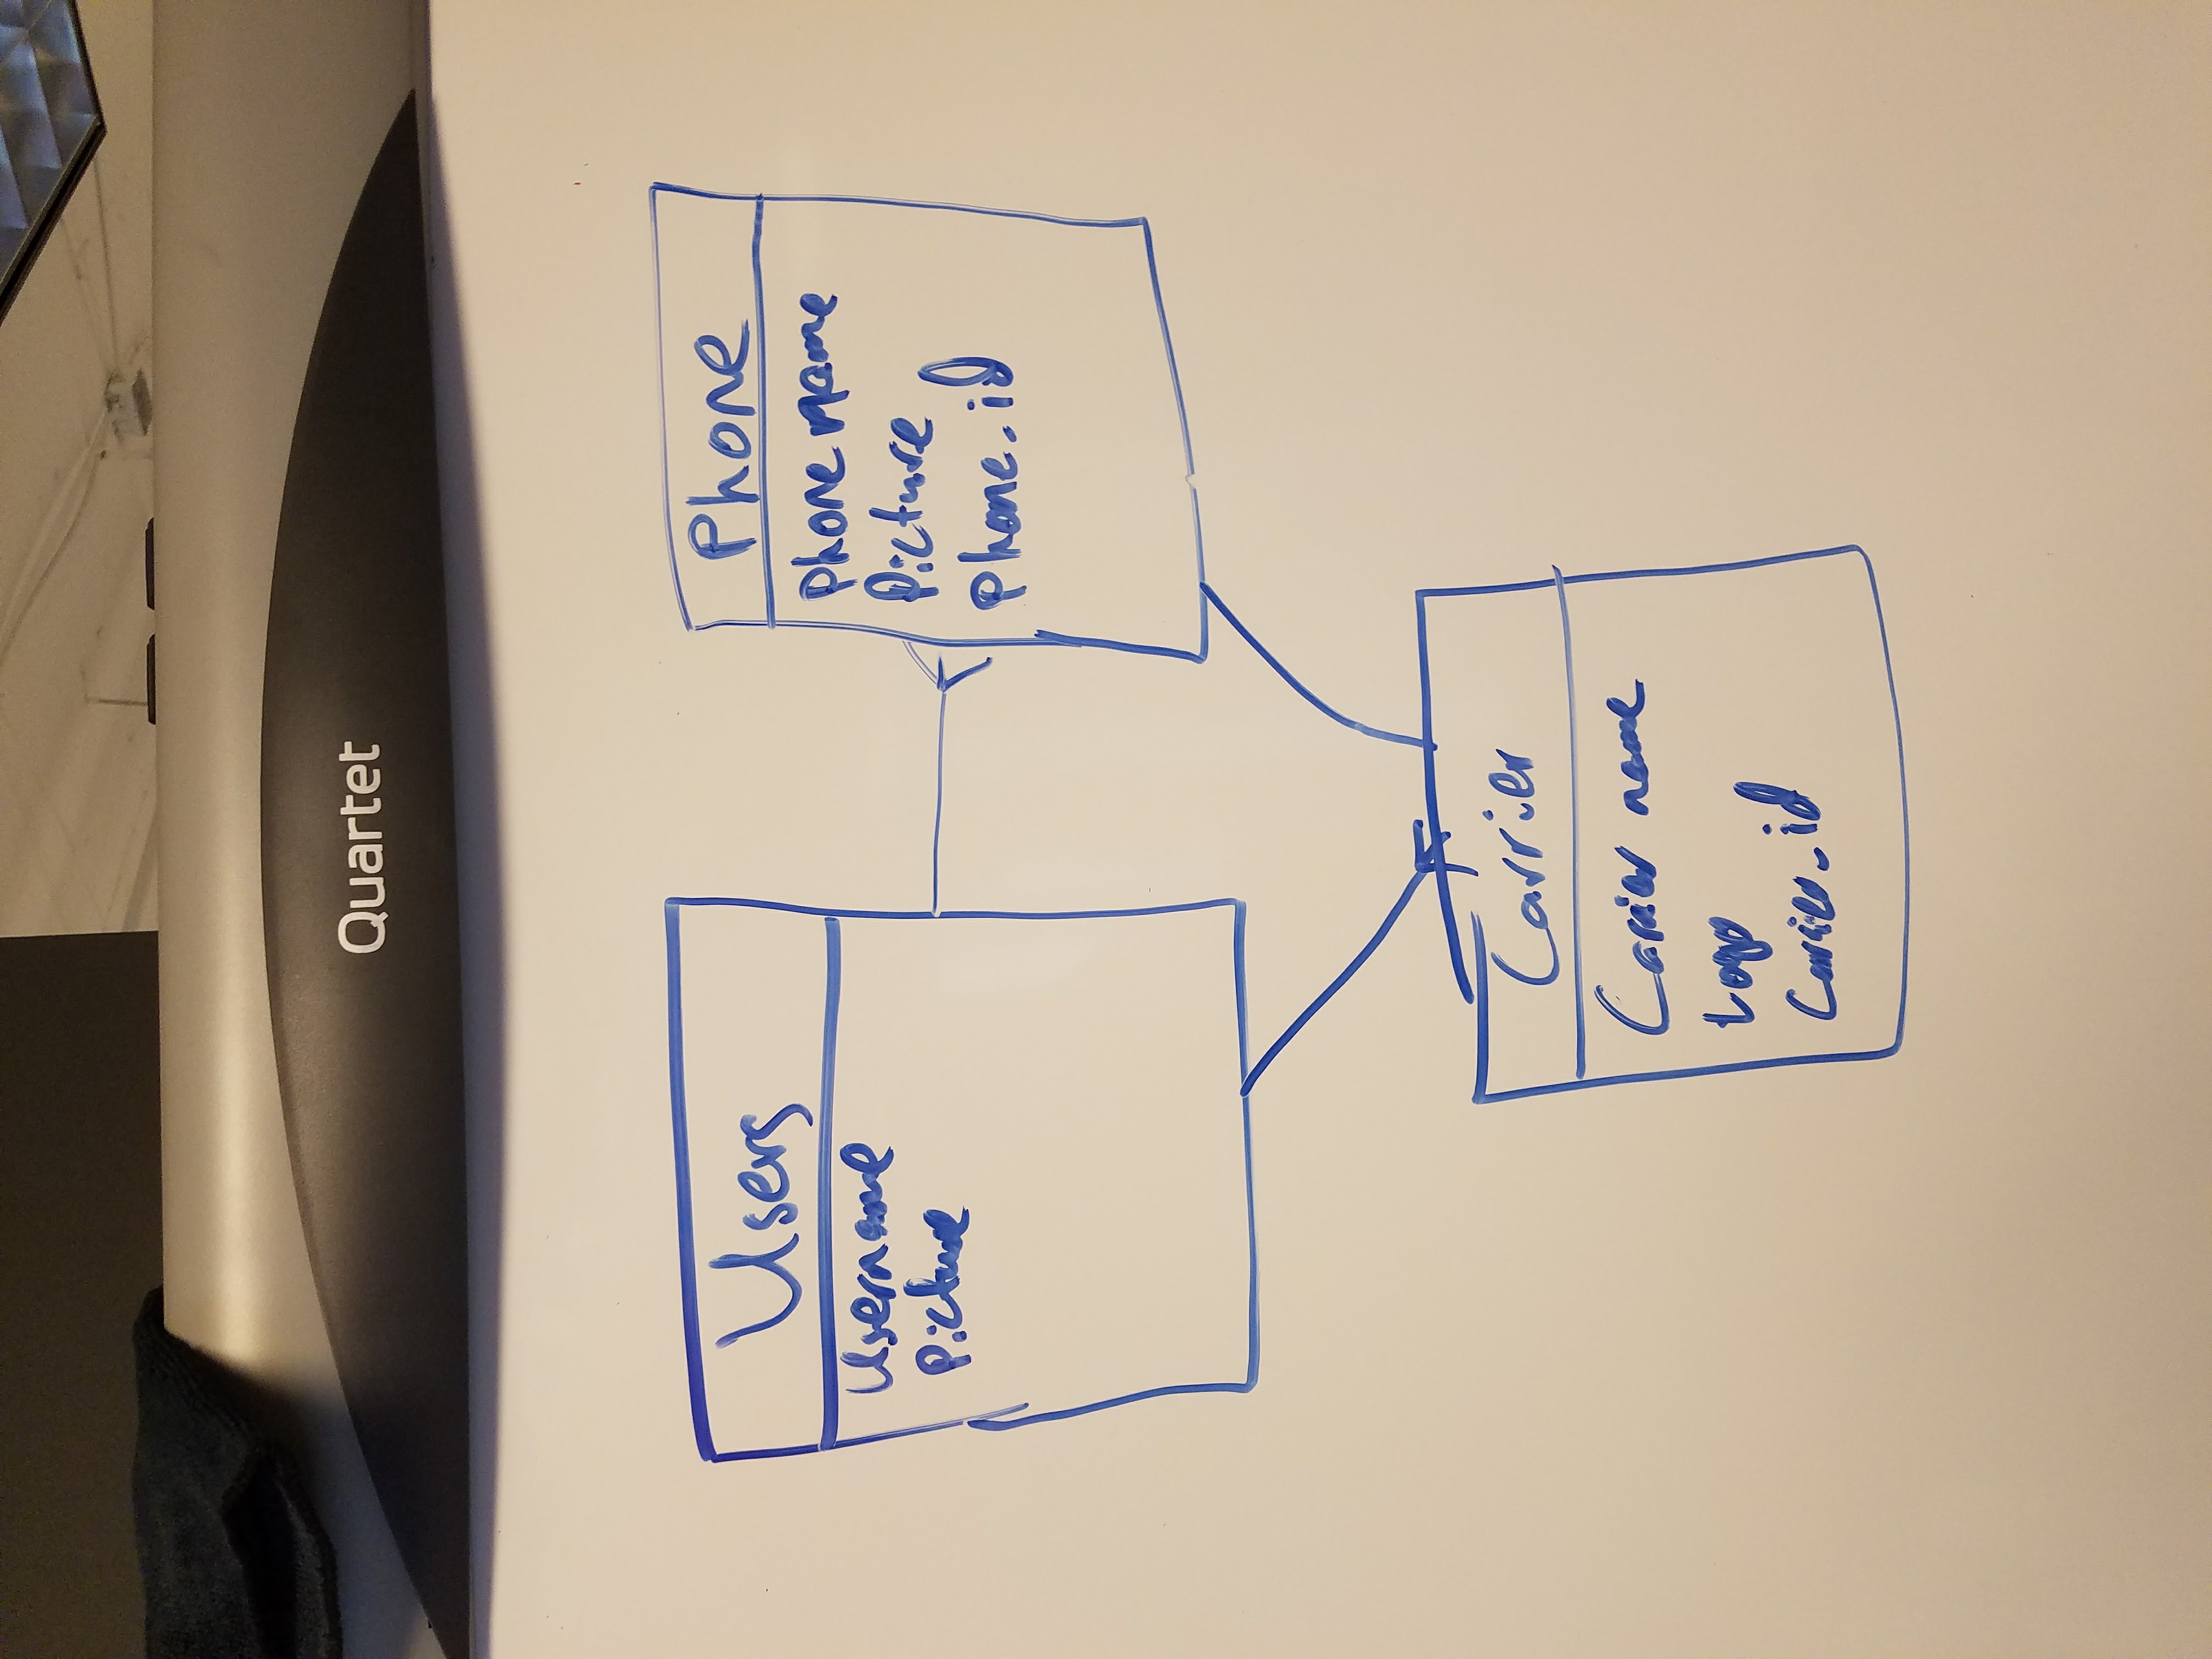 Quartet
Users
Username
Picture
Phone
Phone name
Picture
Phone_id
Carrier
Carrier name
Logo
Carrier_id